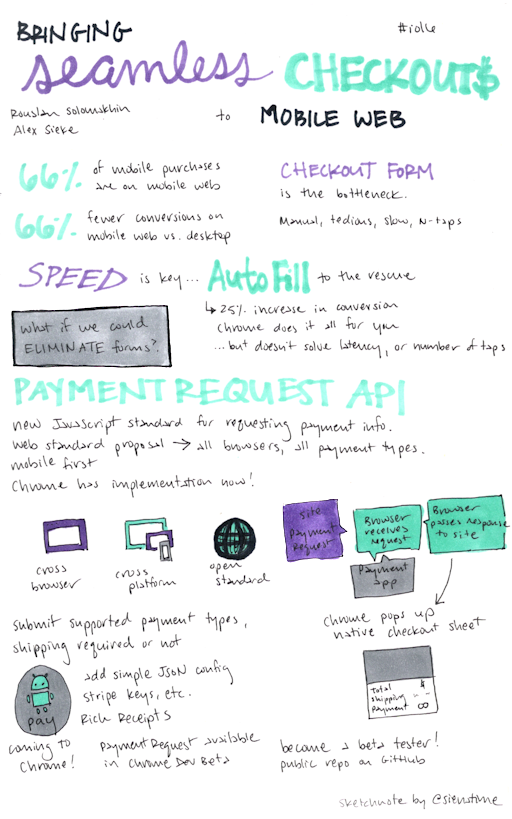 BRINGING
#io16
seamless CHECKOUT$
Rouslan Solomakhin
Alex Sieke
to MOBILE WEB
66% of mobile purchases
are on mobile web
66% fewer conversions on
mobile web vs. desktop
CHECKOUT FORM
is the bottleneck.
Manual, tedious, slow, N-taps
SPEED is key... AutoFill to the rescue
↳ 25% increase in conversion
Chrome does it all for you
...but doesn't solve latency, or number of taps
what if we could
ELIMINATE forms?
PAYMENT REQUEST API
new JavaScript standard for requesting payment info.
web standard proposal → all browsers, all payment types.
mobile first
Chrome has implementation now!
cross
browser
cross
platform
open
standard
Site
Payment
Request
Browser
receives
request
Browser
passes response
to site
Payment
app
Chrome pops up
native checkout sheet
Total $
Shipping
Payment
submit supported payment types,
shipping required or not
pay
add simple JSON config
stripe keys, etc.
Rich Receipts
coming to
Chrome!
PaymentRequest available
in Chrome Dev Beta
become a beta tester!
public repo on GitHub
sketchnote by @sienatime